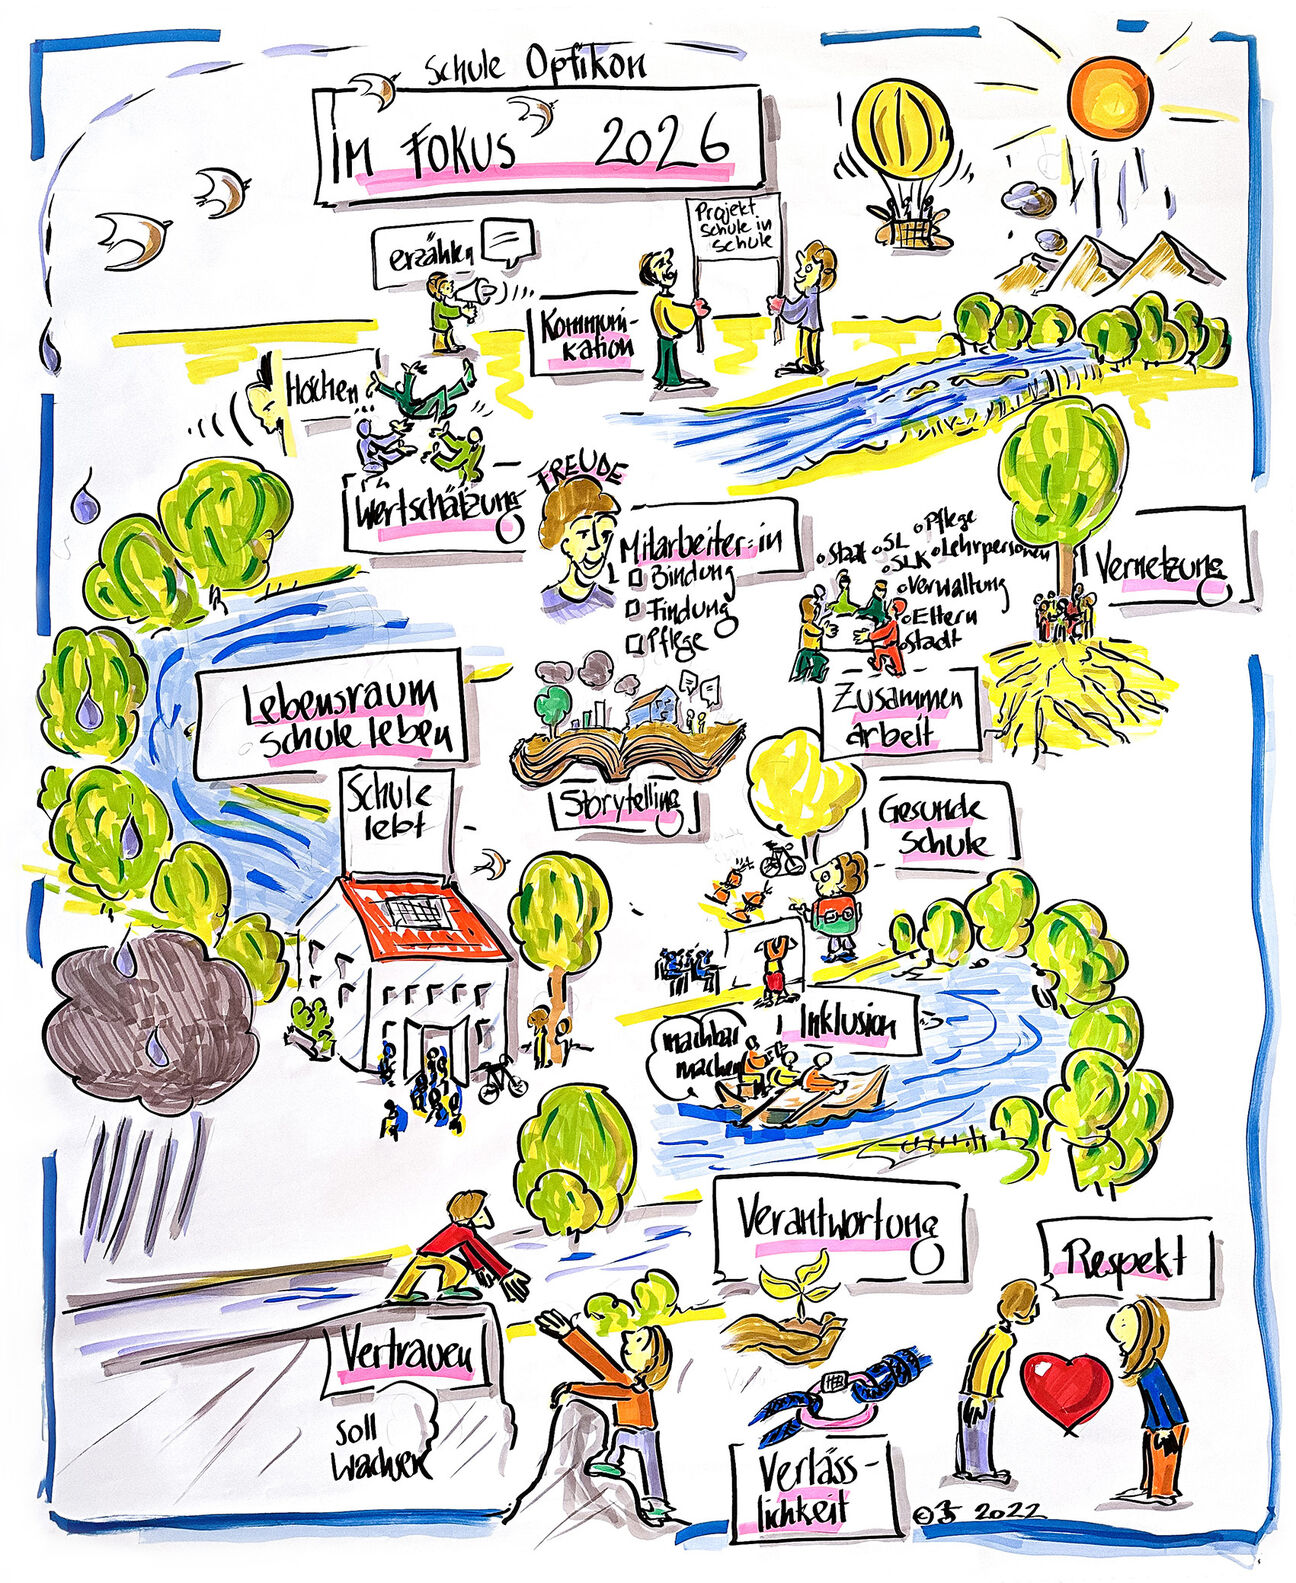 Schule Opfikon
IM FOKUS 2026
Projekt
Schule in
Schule
erzählen
Kommuni-
kation
Horchen
Wertschätzung
FREUDE
Mitarbeiter:in
Bindung
Findung
Pflege
Pflege
SL
Staat
Lehrpersonen
SLK
Verwaltung
Eltern
Stadt
Vernetzung
Zusammen
arbeit
Lebensraum
Schule leben
Storytelling
Schule
lebt
Gesunde
Schule
Inklusion
machbar
machen
Verantwortung
Respekt
Vertrauen
soll
wachsen
Verläss-
lichkeit
2022